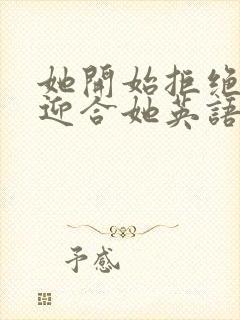 她開始拒绝
迎合她英語
予感